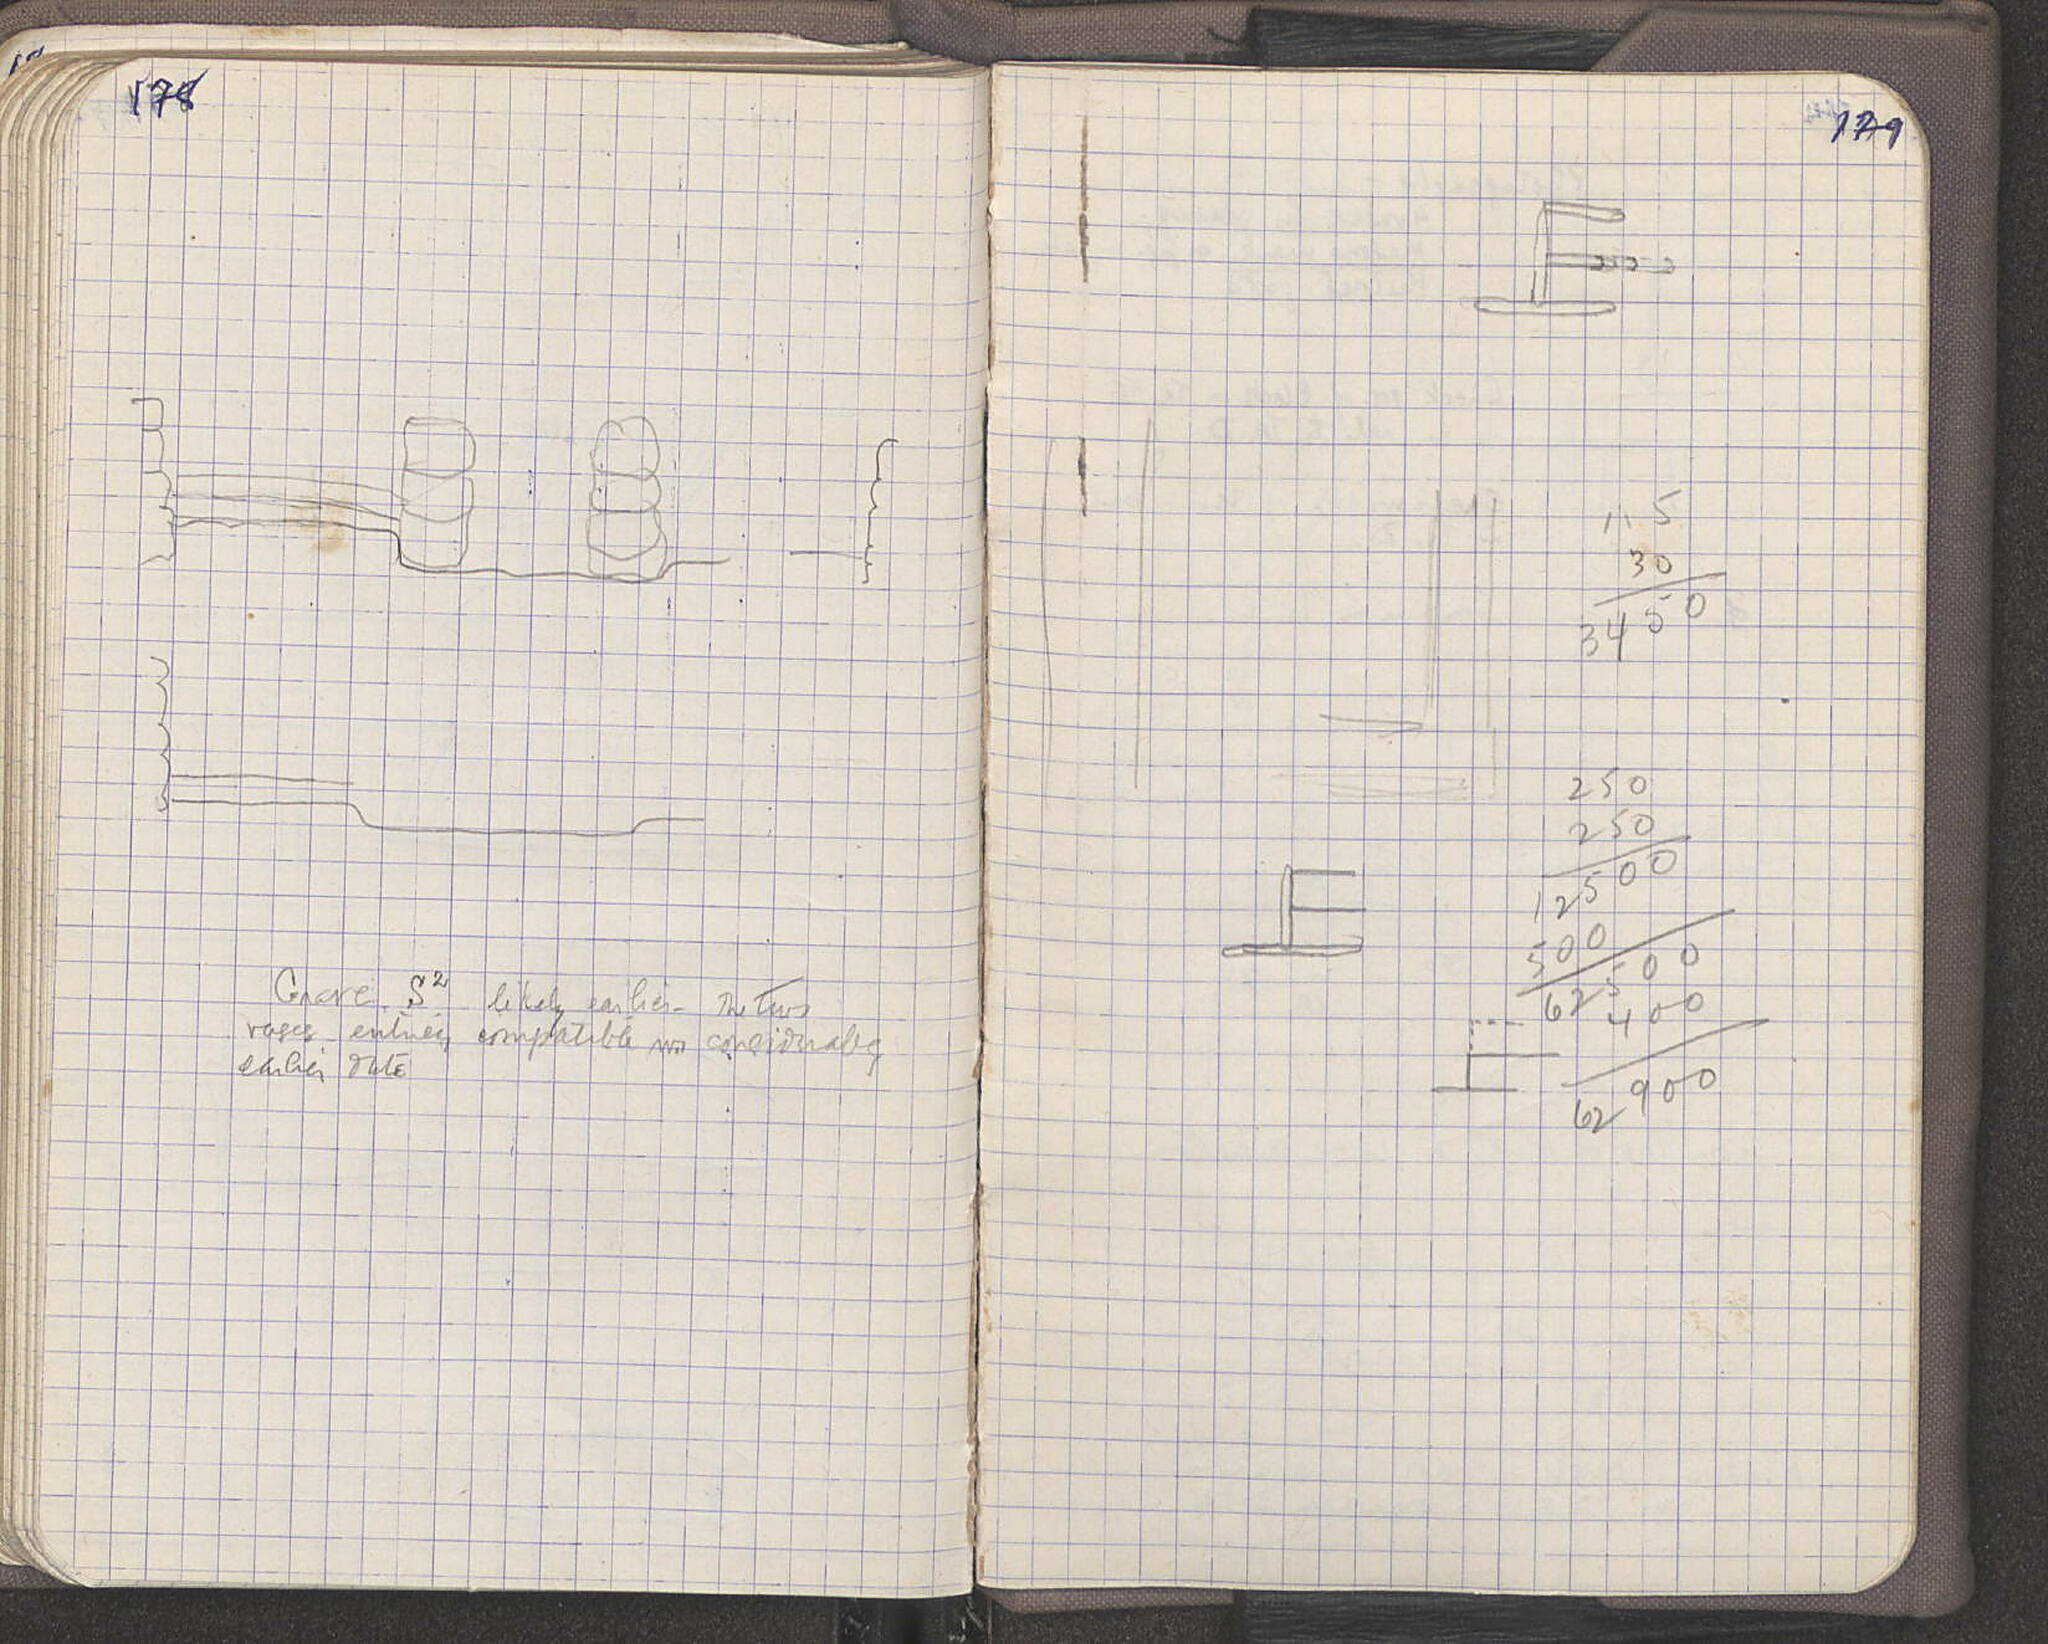 178
Grave S² likely earlier - The two
vases entirely compatible w considerably
earlier date
179
115
30
3450
250
250
12500
500
62500
400
62900